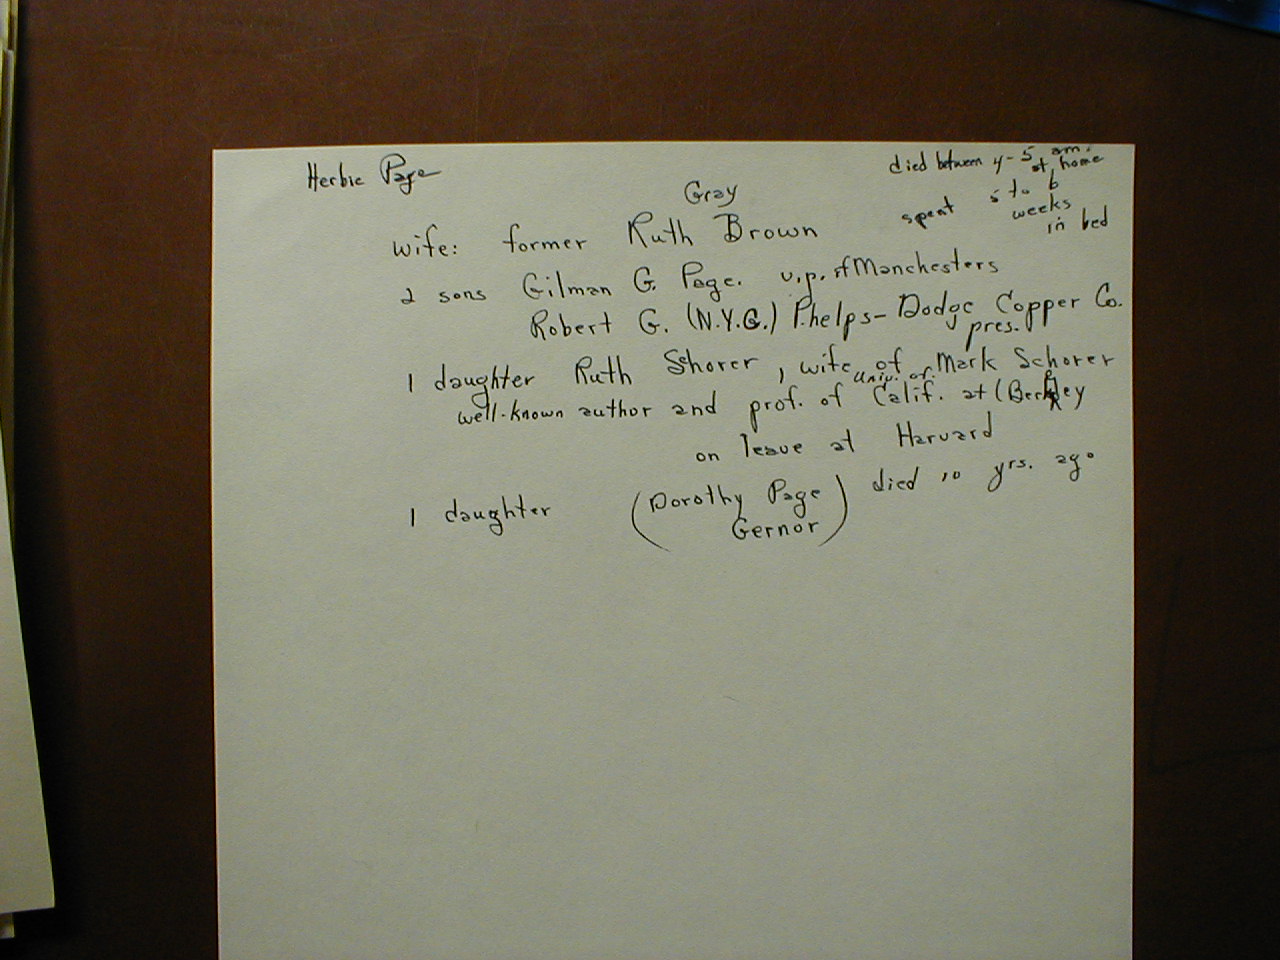 Herbie Page
died between 4-5 am.
at home
spent 5 to 6
weeks
in bed
Gray
wife: former Ruth Brown
2 sons Gilman G. Page. v.p. of Manchesters
Robert G. (N.Y.G.) Phelps-Dodge Copper Co.
pres.
1 daughter Ruth Shorer, wife of Mark Schorer
well-known author and prof. of Univ. of Calif. at (Berkley
on leave at Harvard
1 daughter (Dorothy Page died 10 yrs. ago
Gernor)